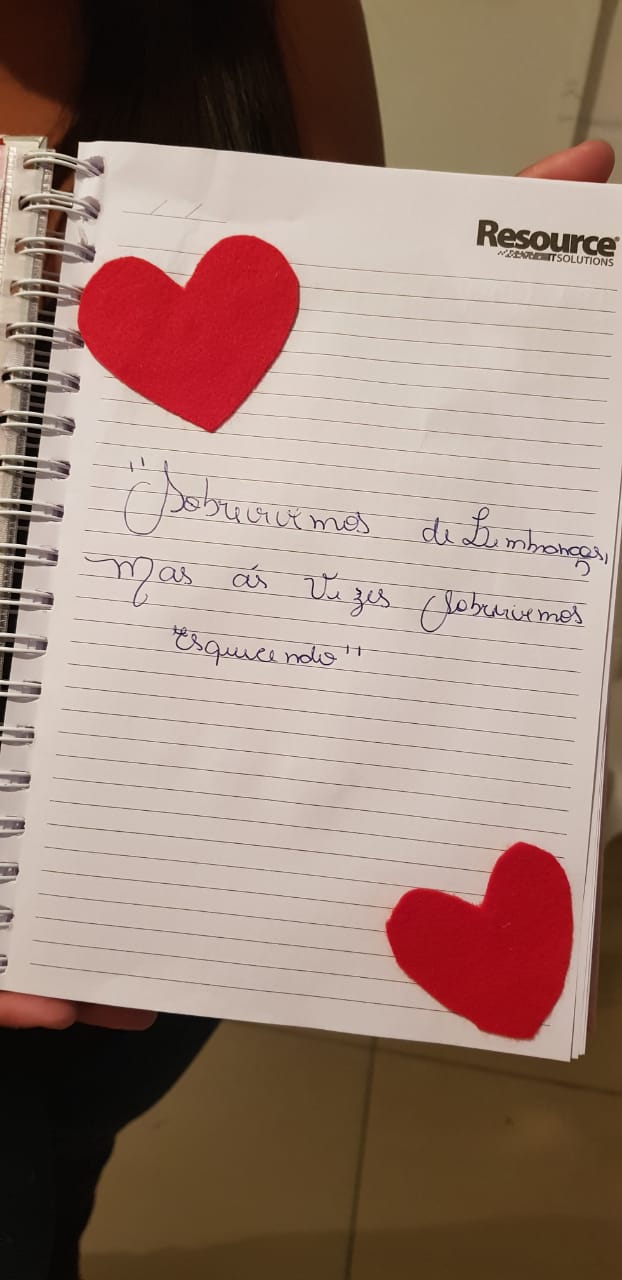 Resource
IT SOLUTIONS
"Sobrevivemos de Lembranças,
Mas ás vezes sobrevivemos
esquecendo"